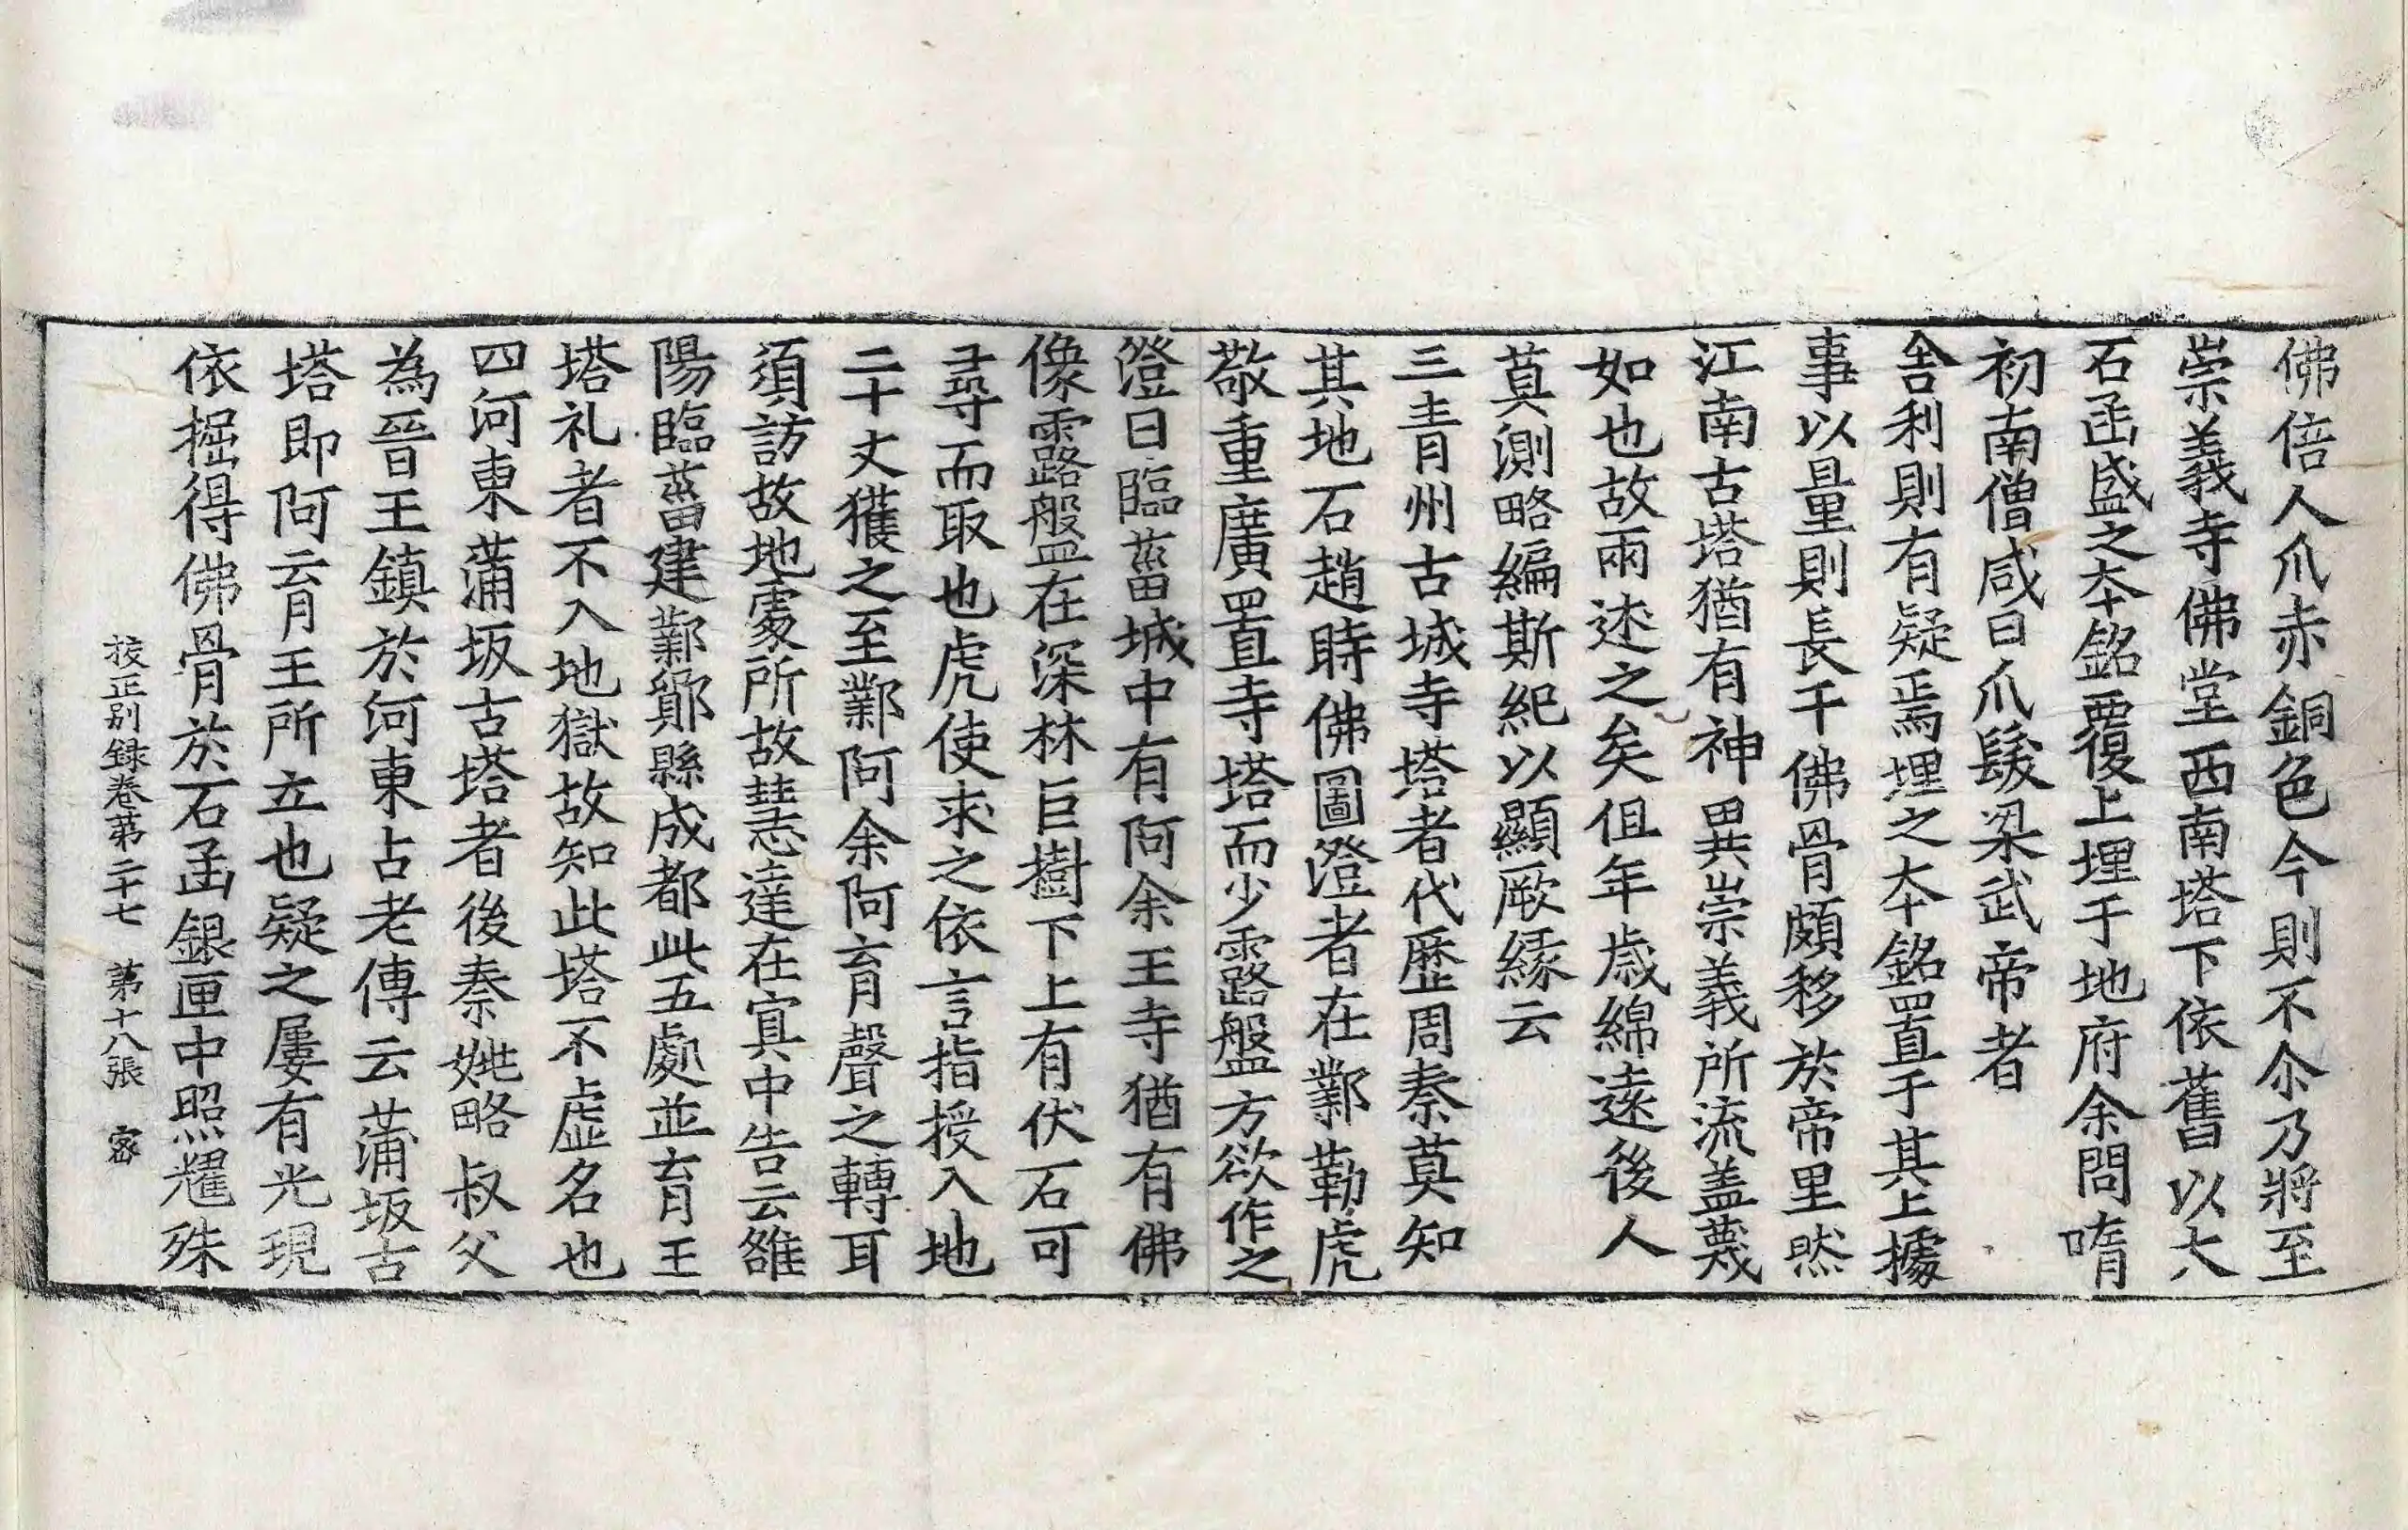 佛倍人爪赤銅色今則不尒乃將至
崇義寺佛堂西南塔下依舊以大
石函盛之夲銘覆上埋于地府余問隋
初南僧咸曰爪髮梁武帝者
舎利則有疑焉埋之夲銘置于其上據
事以量則長干佛骨頗移於帝里然
江南古塔猶有神異崇義所流盖蔑
如也故兩述之矣但年歳綿遠後人
莫測略編斯紀以顯厥縁云
三青州古城寺塔者代歷周秦莫知
其地石趙時佛圖澄者在鄴勒虎
敬重廣置寺塔而少露盤方欲作之
澄曰臨菑城中有阿余王寺猶有佛
像露盤在深林巨樹下上有伏石可
尋而取也虎使求之依言指授入地
二十丈獲之至鄴阿余阿育聲之轉耳
須訪故地處所故慧達在冥中告云雒
陽臨菑建鄴鄮縣成都此五處並育王
塔礼者不入地獄故知此塔不虛名也
四河東蒲坂古塔者後秦姚略叔父
為晉王鎮於河東占老傳云蒲坂古
塔即阿育王所立也疑之屢有光現
依掘得佛骨於石函銀匣中照耀殊
挍正別録卷苐二十七　苐十八張　密